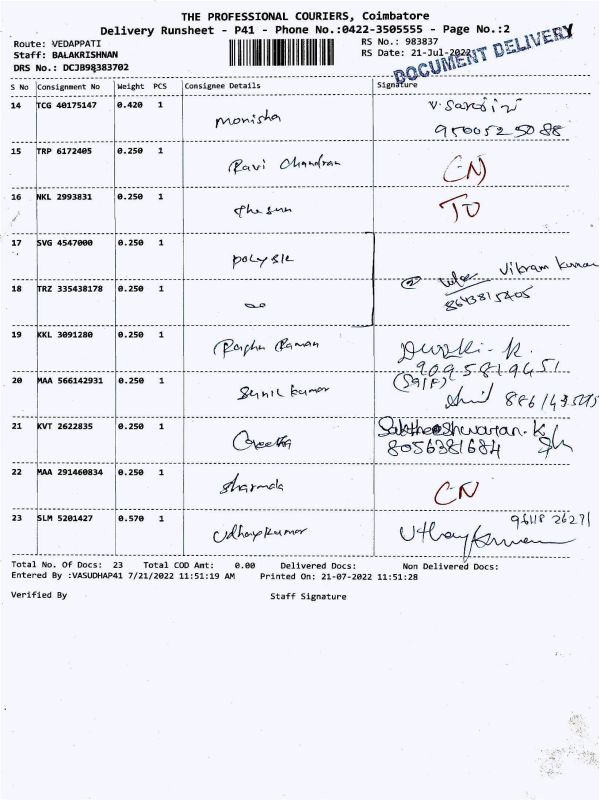 THE PROFESSIONAL COURIERS, Coimbatore
Delivery Runsheet - P41 - Phone No.:0422-3505555 - Page No.:2
Route: VEDAPPATI
RS No.: 983837
Staff: BALAKRISHNAN
RS Date: 21-Jul-2022
DOCUMENT DELIVERY
DRS No.: DCJB98383702
S No Consignment No Weight PCS Consignee Details Signature
14 TCG 40175147 0.420 1 Monisha
15 TRP 6172405 0.250 1 Ravi Chandran CN
16 NKL 2993831 0.250 1 The sun TO
17 SVG 4547000 0.250 1 Vikram Kumar
18 TRZ 335438178 0.250 1
19 KKL 3091280 0.250 1 Raghu Raman
9095819451
20 MAA 566142931 0.250 1 Sunil kumar
21 KVT 2622835 0.250 1 Geetha Saktheeshwaran.K
8056381684
22 MAA 291460834 0.250 1 sharmila CN
23 SLM 5201427 0.570 1 Udhayakumar
Total No. Of Docs: 23 Total COD Amt: 0.00 Delivered Docs: Non Delivered Docs:
Entered By :VASUDHAP41 7/21/2022 11:51:19 AM Printed On: 21-07-2022 11:51:28
Verified By Staff Signature